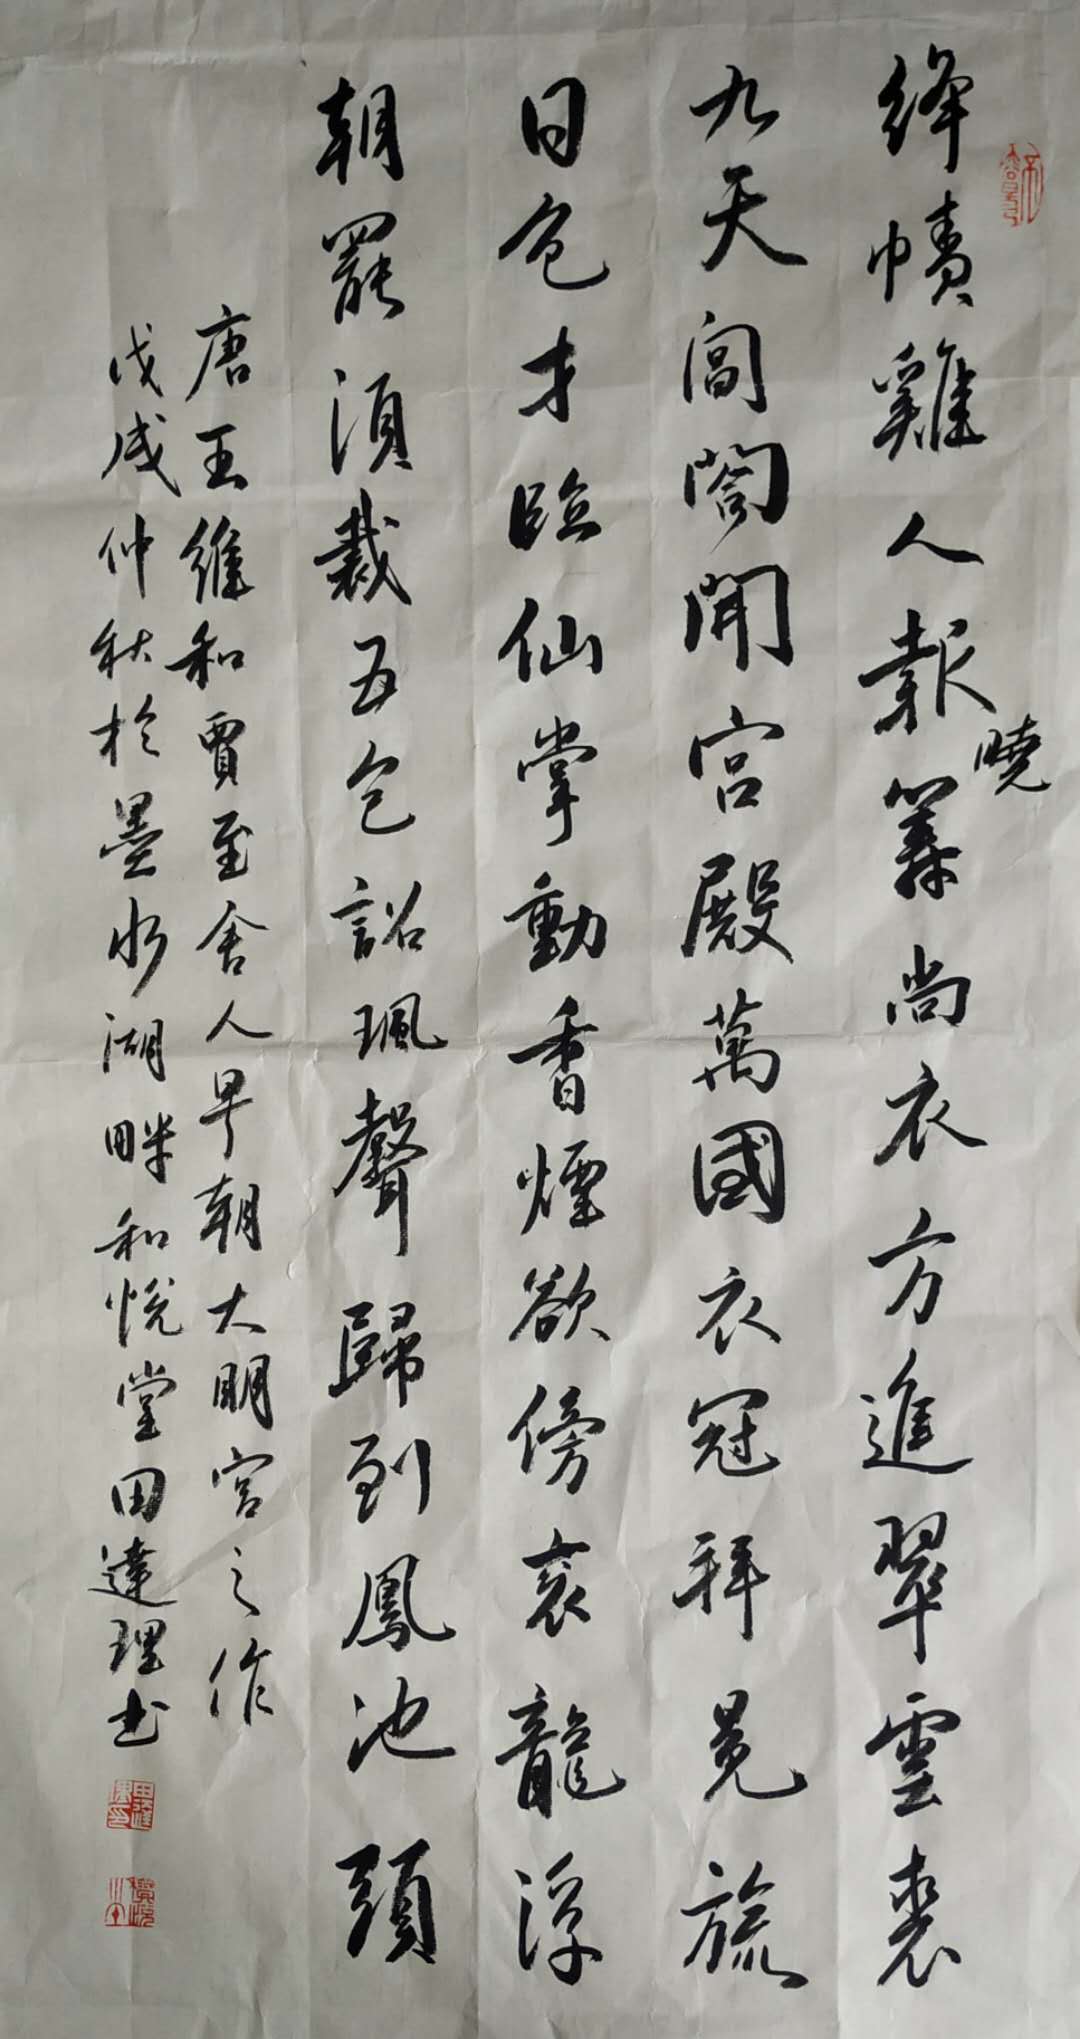 絳幘雞人報籌尚衣方進翠雲裘
曉
九天閶闔開宮殿萬國衣冠拜冕旒
日色才臨仙掌動香煙欲傍袞龍浮
朝罷須裁五色詔珮聲歸到鳳池頭
唐王維和賈至舍人早朝大明宮之作
戊戌仲秋於墨水湖畔和悅堂田達理书